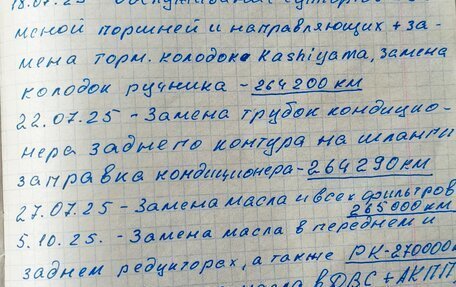 18.07.25
мсной поршней и направляющих + за-
мена торм. колодок Kashiyama, замена
колодок ручника - 264200 км
22.07.25 - Замена трубок кондицио-
нера заднего контура на шланги
заправка кондиционера - 264290 км
27.07.25 - Замена масла и всех фильтров
265000 км
5.10.25. - Замена масла в переднем и
заднем редукторах, а также РК - 270000
масла в ДВС + АКПП